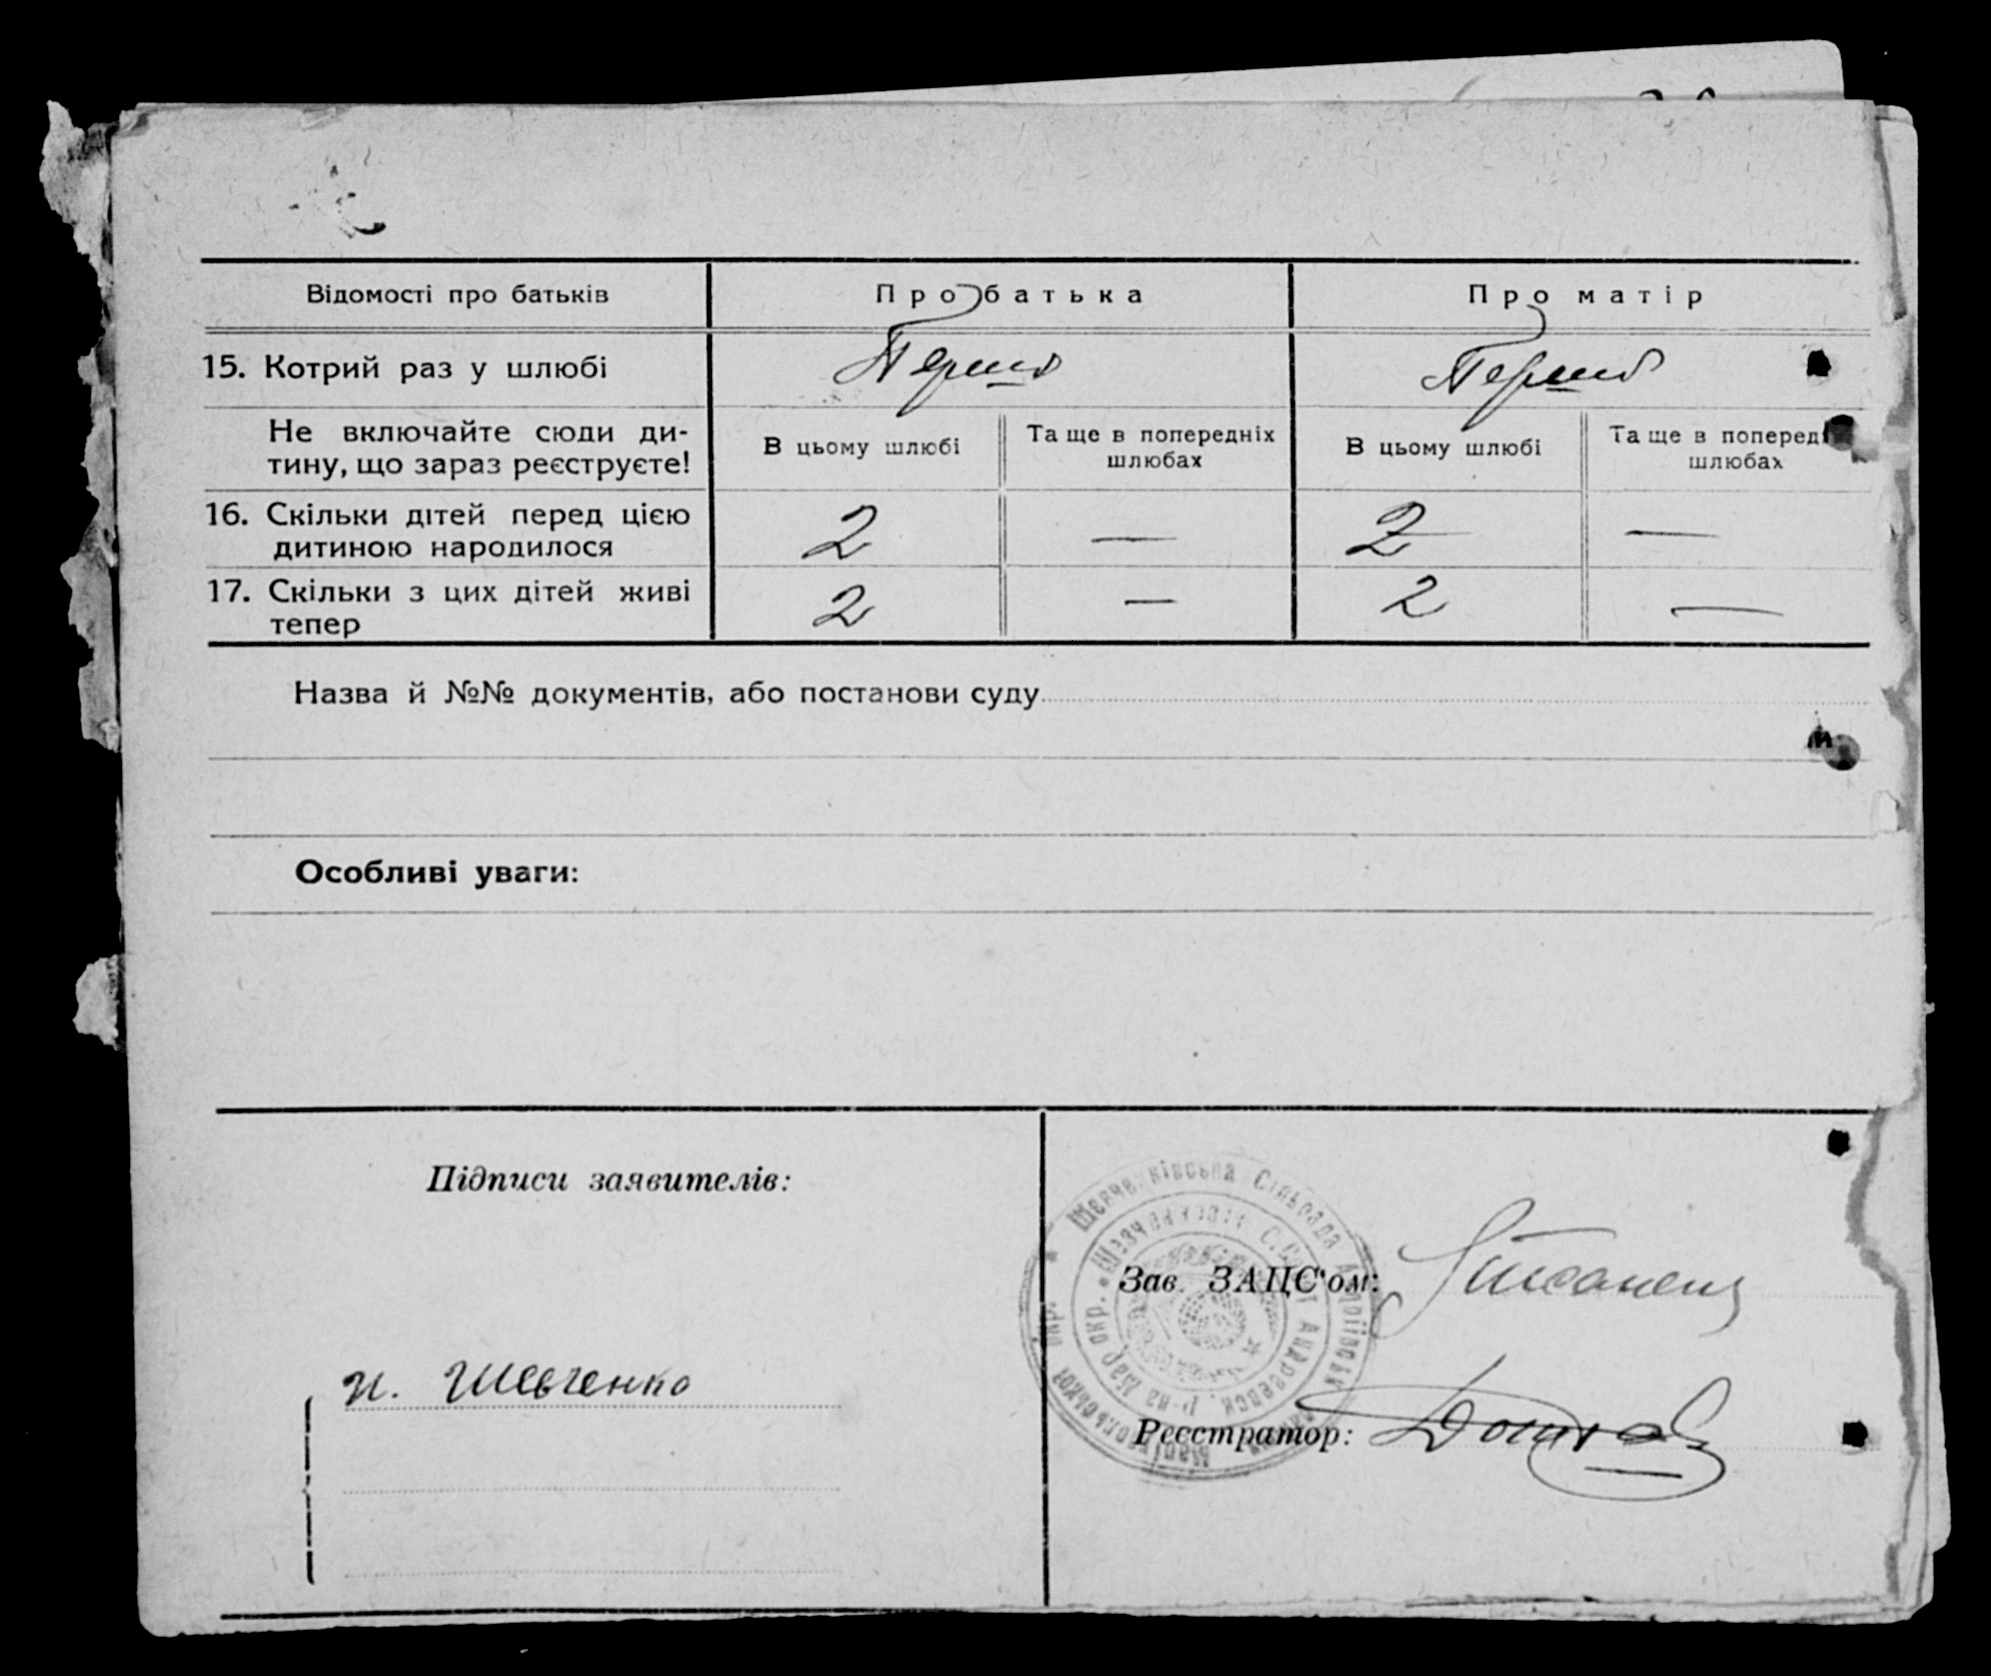 Відомості про батьків Про батька Про матір
15. Котрий раз у шлюбі Перший Перший
Не включайте сюди ди-
тину, що зараз реєструєте!
В цьому шлюбі Та ще в попередніх шлюбах В цьому шлюбі Та ще в поперед шлюбах
16. Скільки дітей перед цією
дитиною народилося 2 — 2 —
17. Скільки з цих дітей живі
тепер 2 — 2 —
Назва й №№ документів, або постанови суду
Особливі уваги:
Підписи заявителів:
Шевченко
Зав. ЗАЦС'ом:
Реєстратор:
Шевченківська Сільрада